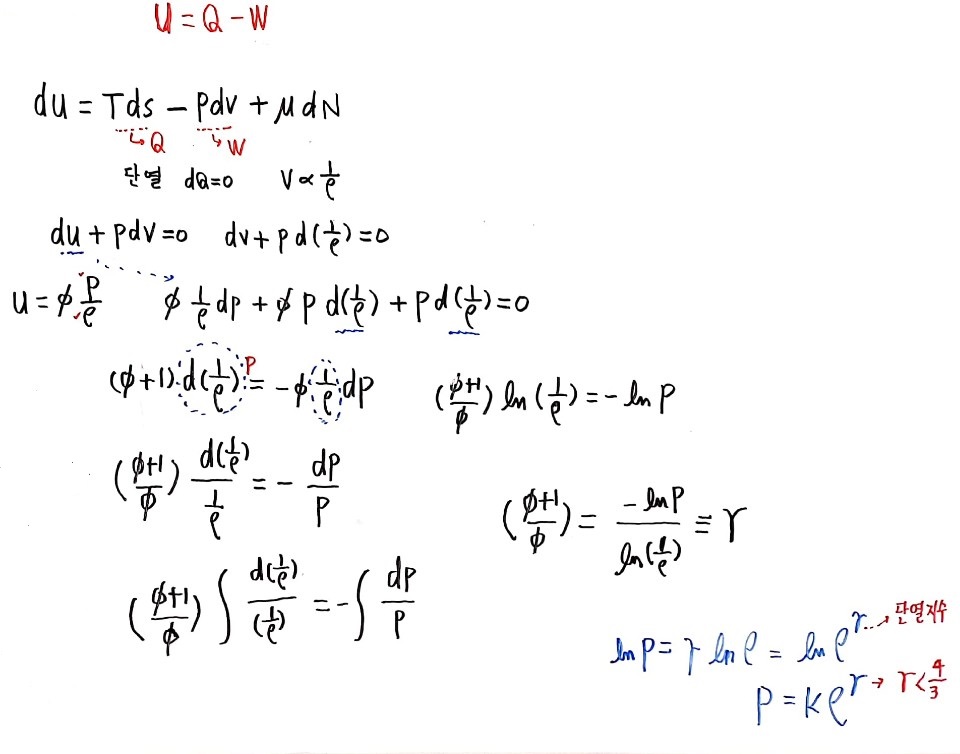 U = Q - W
du = Tds - pdv + μdN
↳Q ↳W
단열 dQ=0 V∝1/ρ
du + pdv=0 dv + p d(1/ρ)=0
u = φ P/ρ φ 1/ρ dp + φ p d(1/ρ) + p d(1/ρ)=0
(φ+1) d(1/ρ) P = -φ 1/ρ dp
((φ+1)/φ) ln(1/ρ) = -ln P
((φ+1)/φ) d(1/ρ)/(1/ρ) = - dP/P
((φ+1)/φ) = -lnP/ln(1/ρ) ≡ γ
((φ+1)/φ) ∫ d(1/ρ)/(1/ρ) = -∫ dP/P
ln P = γ ln ρ = ln ρ^γ → 단열지수
P = Kρ^γ → γ<4/3